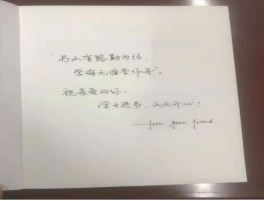 “书山有路勤为径，
学海无涯苦作舟”。
祝亲爱的你：
学习进步，天天开心！
——from your friend